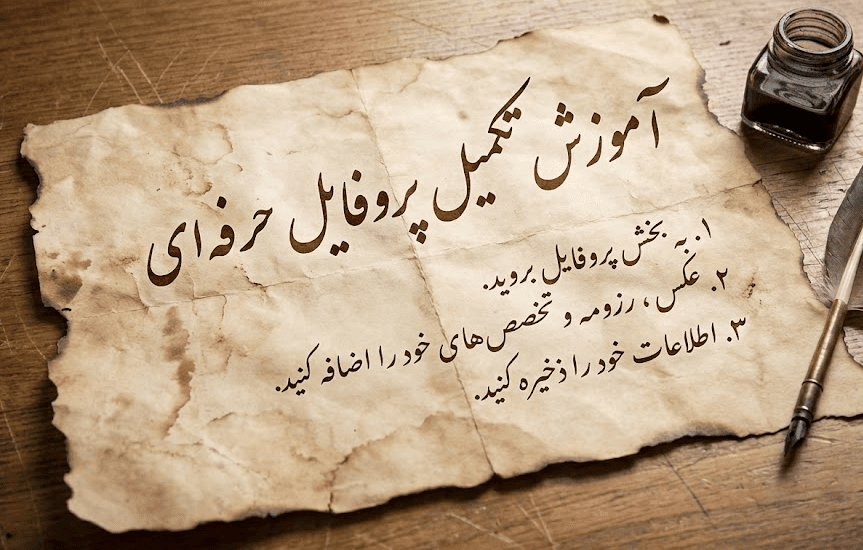 آموزش تکمیل پروفایل حرفه‌ای
۱. به بخش پروفایل بروید.
۲. عکس، رزومه و تخصص‌های خود را اضافه کنید.
۳. اطلاعات خود را ذخیره کنید.